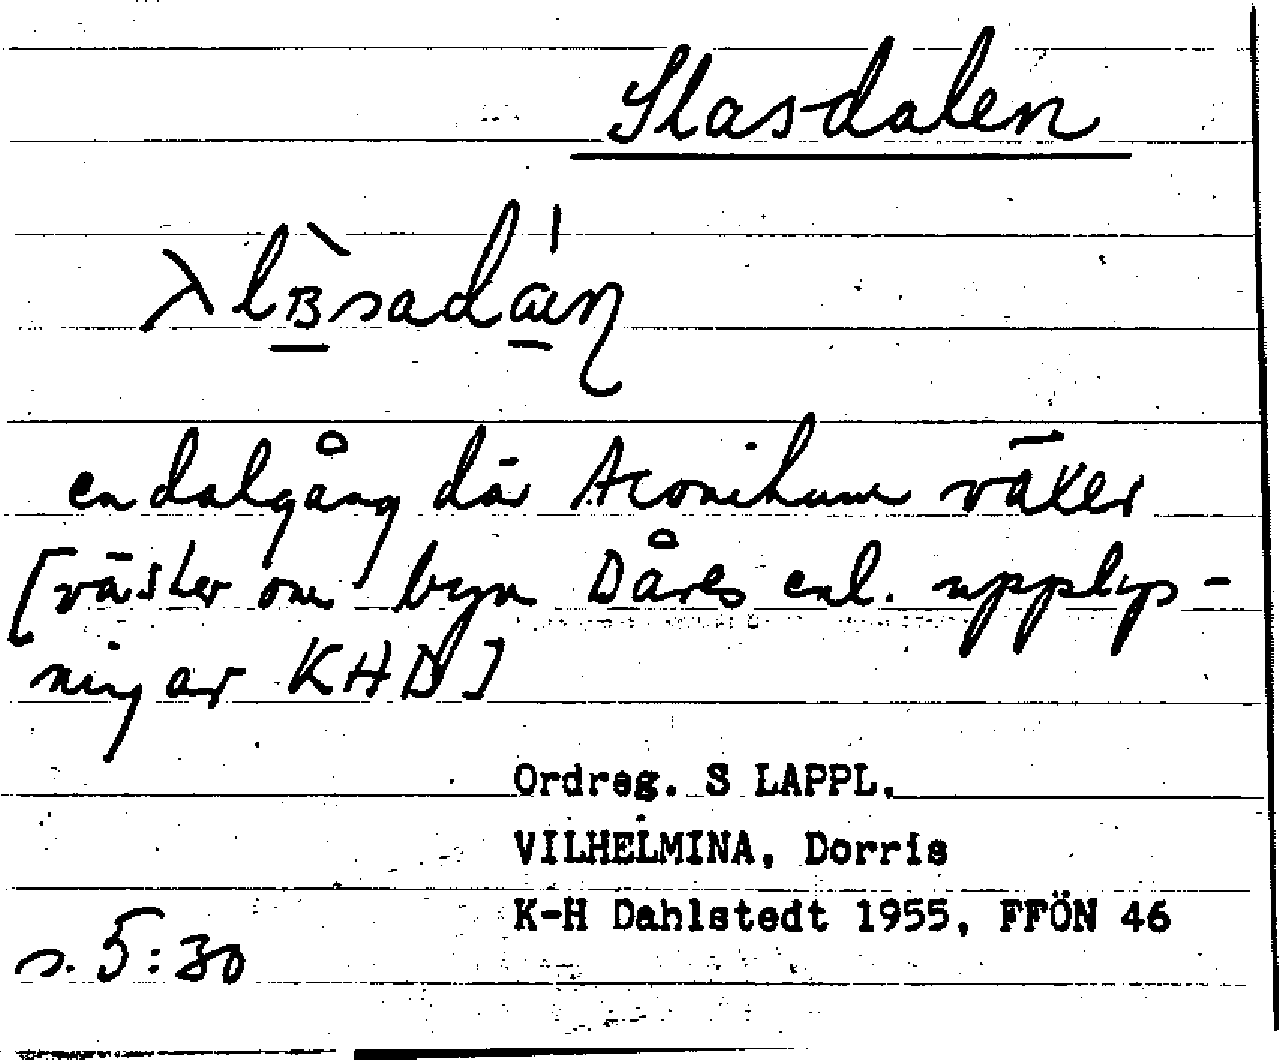 Slasdalen
en dalgång där Aconitum växer
[väster om byn Dåres enl. upplys-
ning av KHD]
Ordreg. S LAPPL.
VILHELMINA, Dorris
K-H Dahlstedt 1955, FFÖN 46
s. 5:30